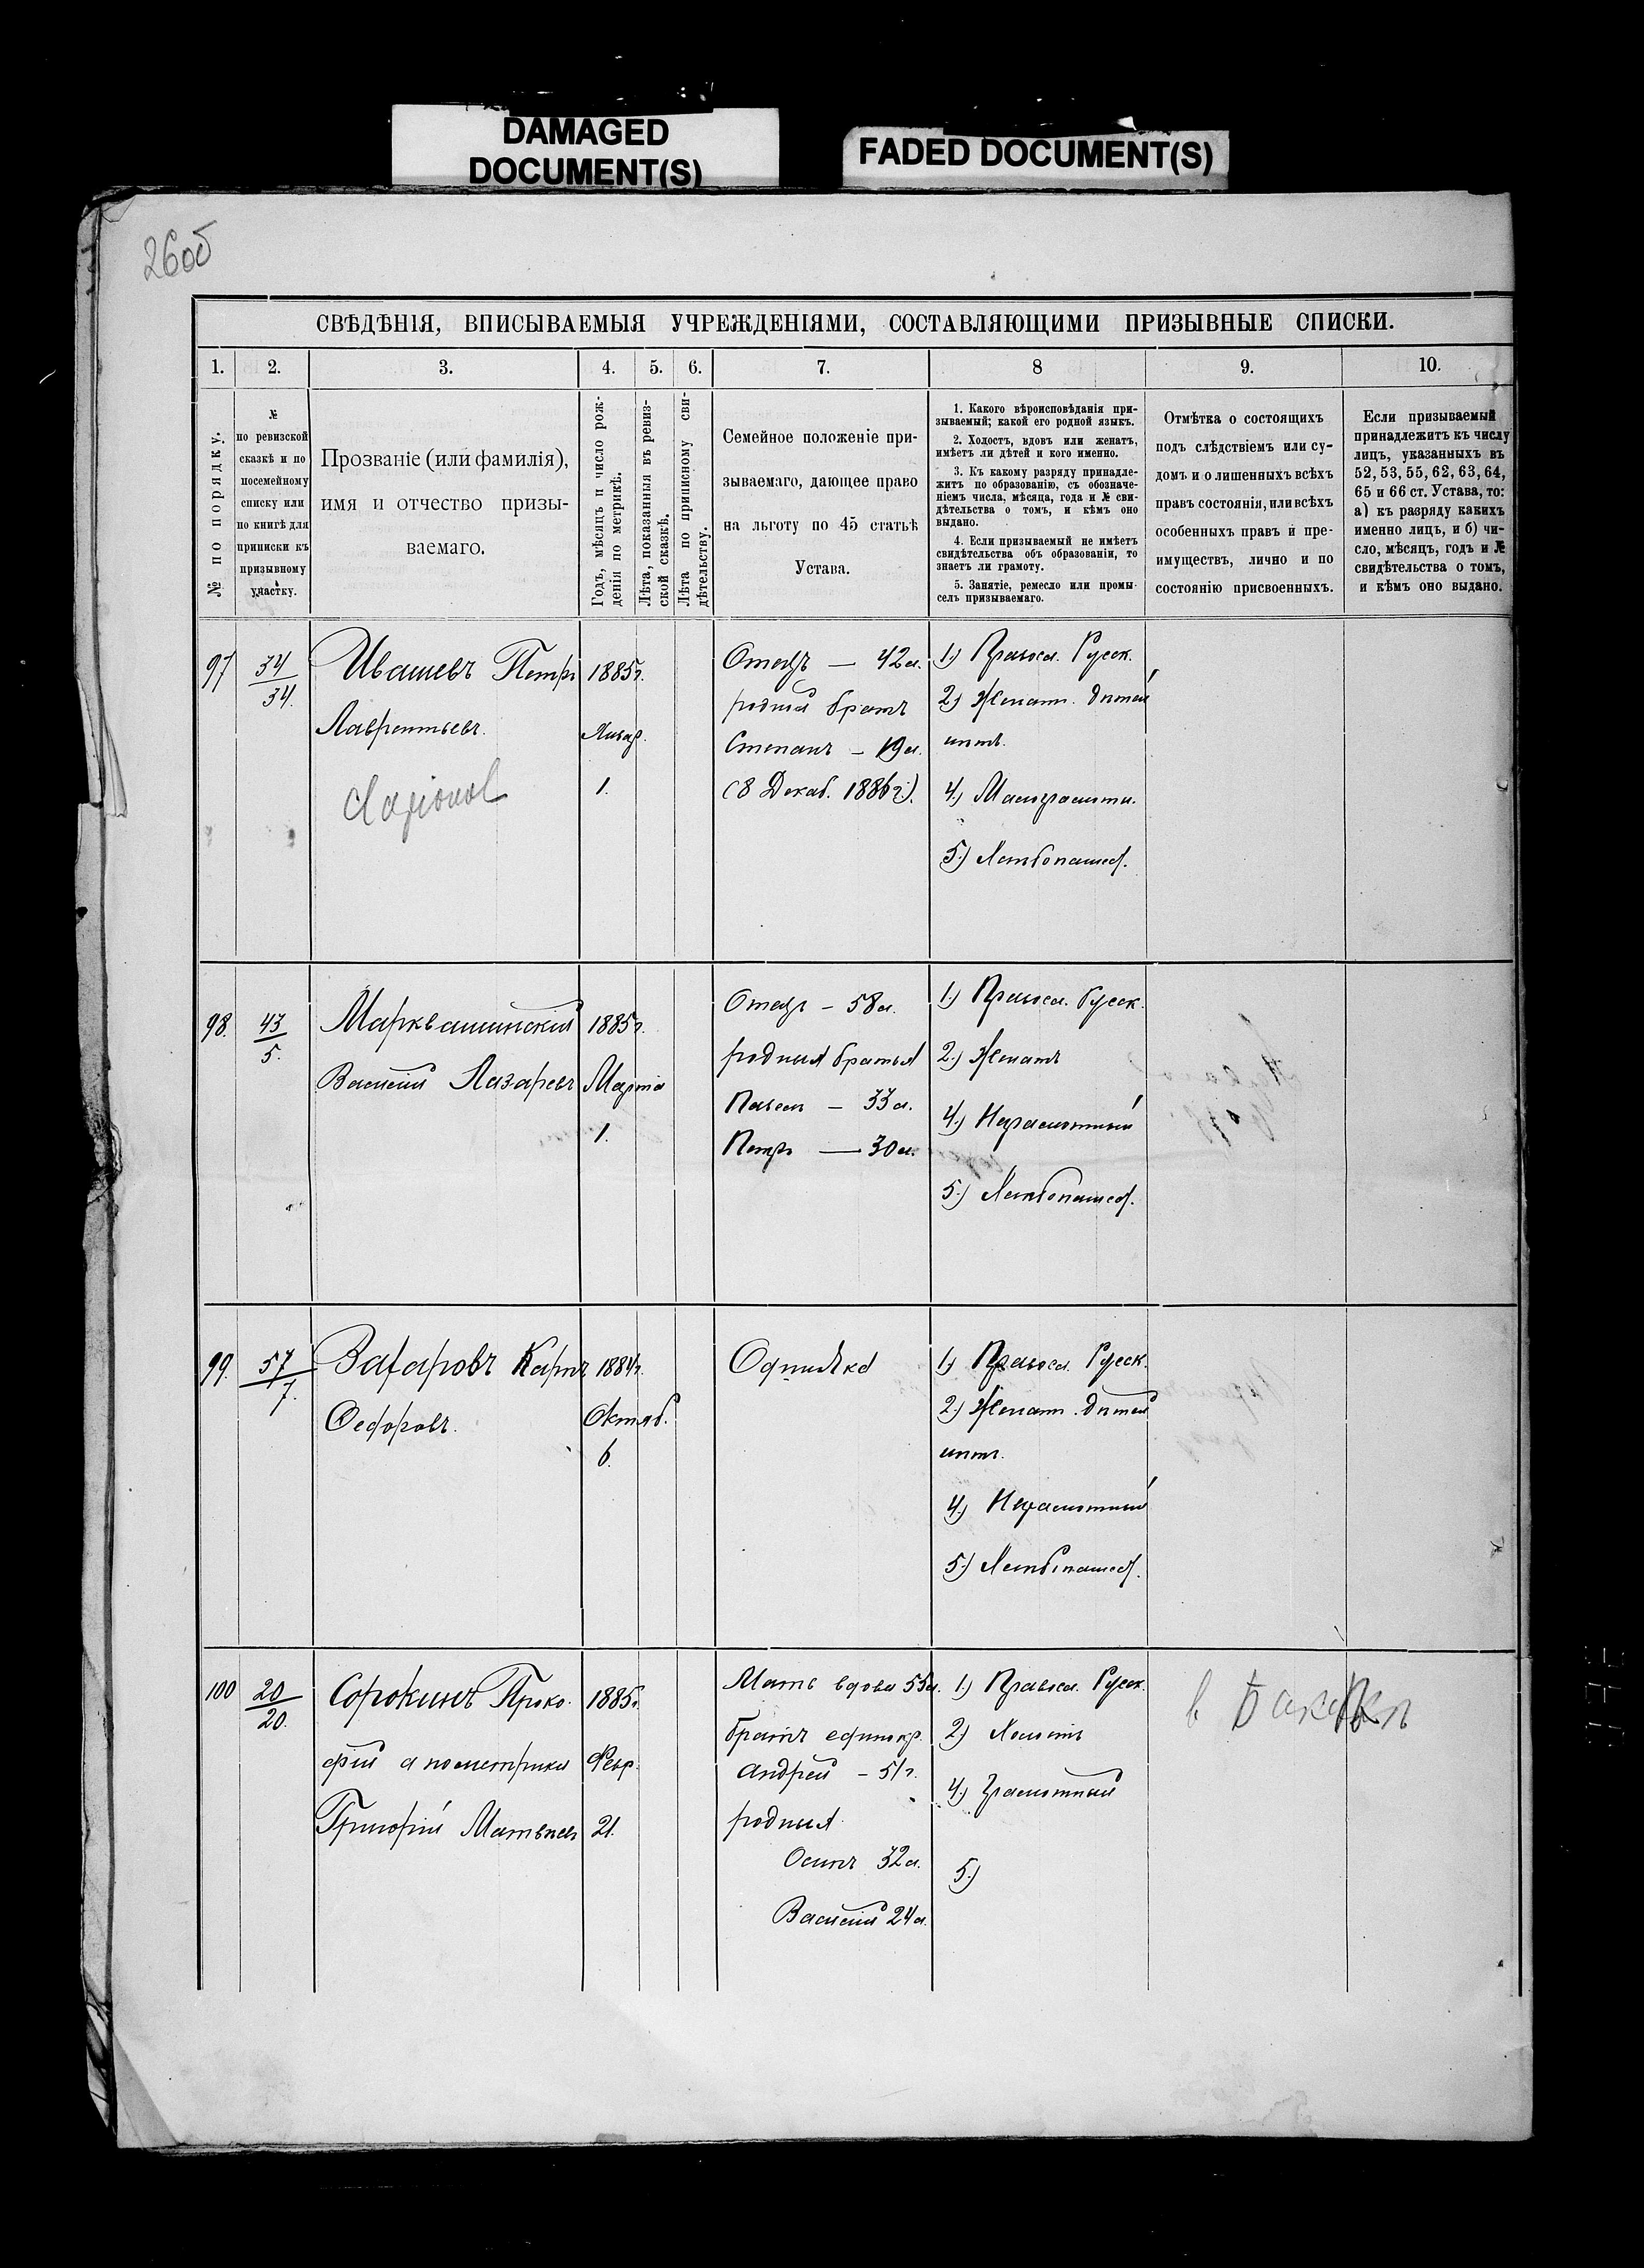 DAMAGED
DOCUMENT(S)
FADED DOCUMENT(S)
26об
СВѢДѢНІЯ, ВПИСЫВАЕМЫЯ УЧРЕЖДЕНІЯМИ, СОСТАВЛЯЮЩИМИ ПРИЗЫВНЫЕ СПИСКИ.
1. 2. 3. 4. 5. 6. 7. 8 9. 10.
№ по порядку.
№
по ревизской
сказкѣ и по
посемейному
списку или
по книгѣ для
приписки къ
призывному
участку.
Прозваніе (или фамилія),
имя и отчество призы-
ваемаго.
Годъ, мѣсяцъ и число рож-
денія по метрикѣ.
Лѣта, показанныя въ ревиз-
ской сказкѣ.
Лѣта по приписному сви-
дѣтельству.
Семейное положеніе при-
зываемаго, дающее право
на льготу по 45 статьѣ
Устава.
1. Какого вѣроисповѣданія при-
зываемый; какой его родной языкъ.
2. Холостъ, вдовъ или женатъ,
имѣетъ ли дѣтей и кого именно.
3. Къ какому разряду принадле-
житъ по образованію, съ обозначе-
ніемъ числа, мѣсяца, года и № сви-
дѣтельства о томъ, и кѣмъ оно
выдано.
4. Если призываемый не имѣетъ
свидѣтельства объ образованіи, то
знаетъ ли грамоту.
5. Занятіе, ремесло или промы-
селъ призываемаго.
Отмѣтка о состоящихъ
подъ слѣдствіемъ или су-
домъ и о лишенныхъ всѣхъ
правъ состоянія, или всѣхъ
особенныхъ правъ и пре-
имуществъ, лично и по
состоянію присвоенныхъ.
Если призываемый
принадлежитъ къ числу
лицъ, указанныхъ въ
52, 53, 55, 62, 63, 64,
65 и 66 ст. Устава, то:
а) къ разряду какихъ
именно лицъ, и б) чи-
сло, мѣсяцъ, годъ и №
свидѣтельства о томъ,
и кѣмъ оно выдано.
97
34
34.
Ивашевъ Петръ
Лаврентьевъ.
1885г.
Январ.
1.
Отецъ — 42л.
родной братъ
Степанъ — 19л.
(8 Декаб. 1886г.).
1.) Правосл. Русск.
2.) Женатъ. дѣтей
нѣтъ.
4.) Малограмотн.
5.) Хлѣбопашец.
98.
43
5.
Марквашинскій
Василій Лазаревъ
1885г.
Марта
1.
Отецъ – 58л.
родныя братья
Павелъ – 33л.
Петръ — 30л.
1.) Правосл. Русск.
2.) Женатъ
4.) Неграмотный
5.) Хлѣбопашец.
99.
57
7.
Захаровъ Карпъ
Федоровъ.
1884г.
Октяб.
6.
Одиночка
1.) Правосл. Русск.
2.) Женатъ. дѣтей
нѣтъ.
4.) Неграмотный
5.) Хлѣбопашец.
100
20
20.
Сорокинъ Проко-
фій а по метрики
Григорій Матвѣевъ
1885г.
Февр.
21.
Мать вдова 55л.
братъ единокр.
Андрей – 51г.
родныя
Осипъ 32л.
Василій 24л.
1.) Правосл. Русск.
2.) Холостъ
4.) Грамотный
5.)
в